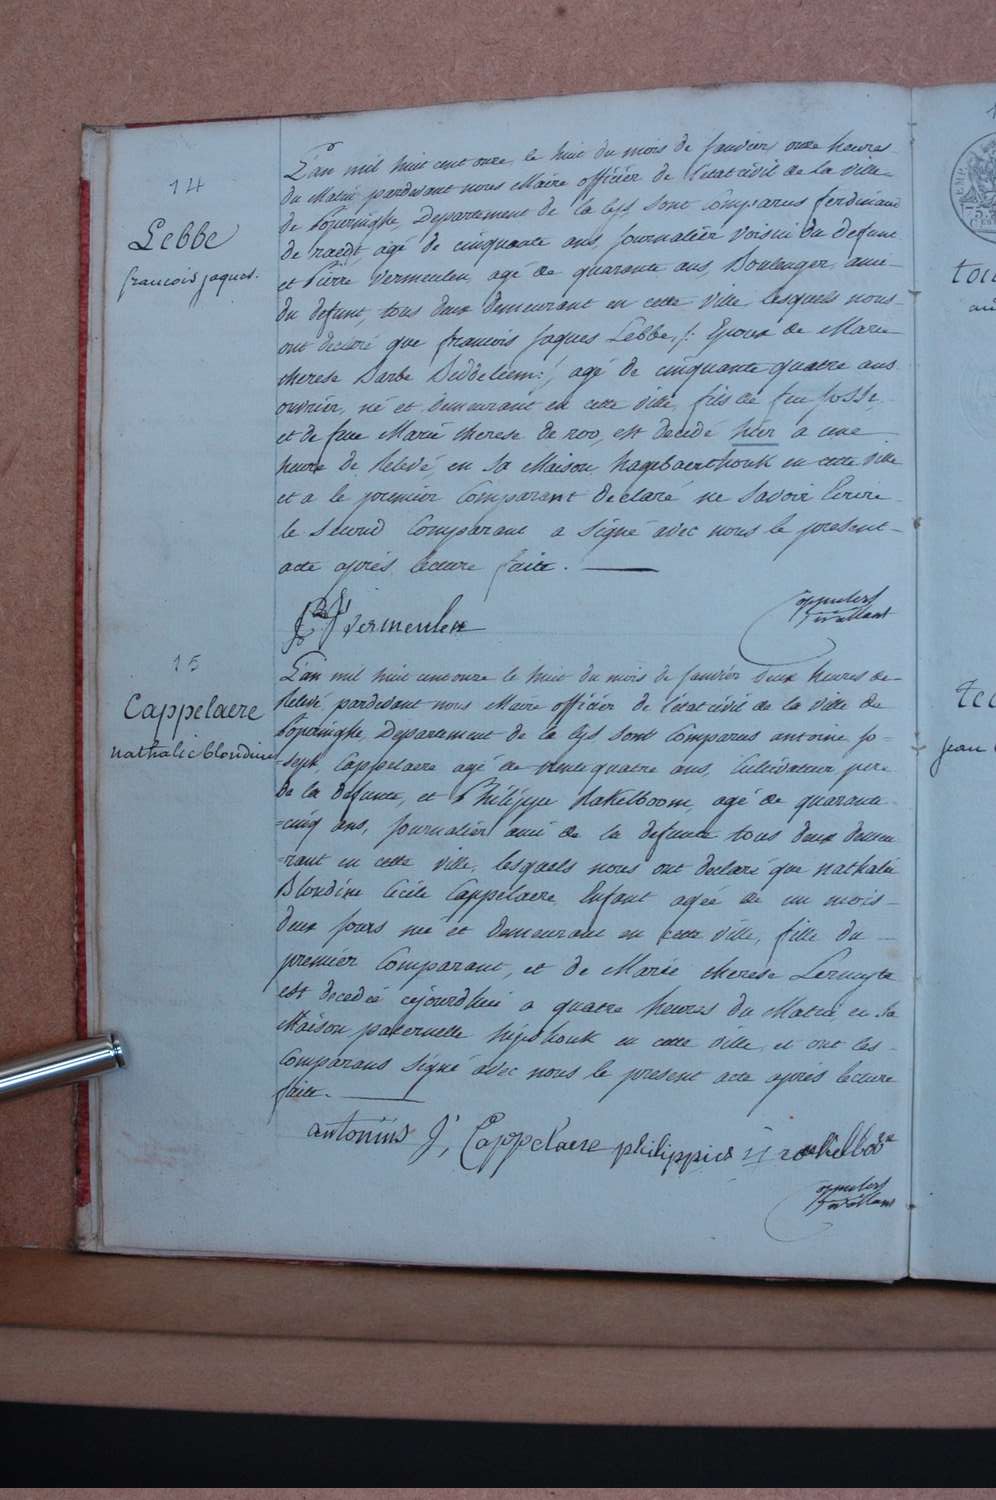 14
Lebbe
francois jaques.
L'an mil huit cent onze, le huit du mois de Janvier onze heures
du Matin pardevant nous Maire officier de l'état civil de la ville
de Poperinghe, Departement de la Lys sont Comparus ferdinand
de raedt agé de cinquante ans, Journalier voisin du defunt
et Pierre Vermeulen, agé de quarante ans, Boulenger, ami
du defunt, tous deux demeurant en cette ville lesquels nous
ont declaré que françois Jaques Lebbe, /: Epoux de Marie
therese Barbe :/, agé de cinquante quatre ans
ouvrier, né et demeurant en cette ville, fils de feu Josse
et de feue Marie therese de roo, est decedé hier a une
heure de relevé, en sa Maison, en cette ville
et a le premier Comparant declaré ne savoir Ecrire
le second Comparant a signé avec nous le present
acte après lecture faite.
vermeulen
15
Cappelaere
nathalie blondine
L'an mil huit cent onze le huit du mois de Janvier deux heures de
relevé, pardevant nous Maire officier de l'état civil de la ville de
Poperinghe, Departement de la Lys sont Comparus antoine jo-
-seph Cappelaere agé de trente quatre ans, Cultivateur, pere
de la defunte, et Philippe rakelboom, agé de quarante
-cinq ans, Journalier ami de la defunte tous deux demeu
-rant en cette ville, lesquels nous ont declaré que nathalie
Blondine Cecile Cappelaere, Enfant agée de un mois
deux jours née et demeurant en cette ville, fille du
premier Comparant, et de Marie therese Lermyte
est decedée cejourdhui a quatre heures du Matin en sa
Maison paternelle en cette ville, et ont les
Comparans signé avec nous le present acte après lecture
faite.
antonius J, Cappelaere philippus rakelboom